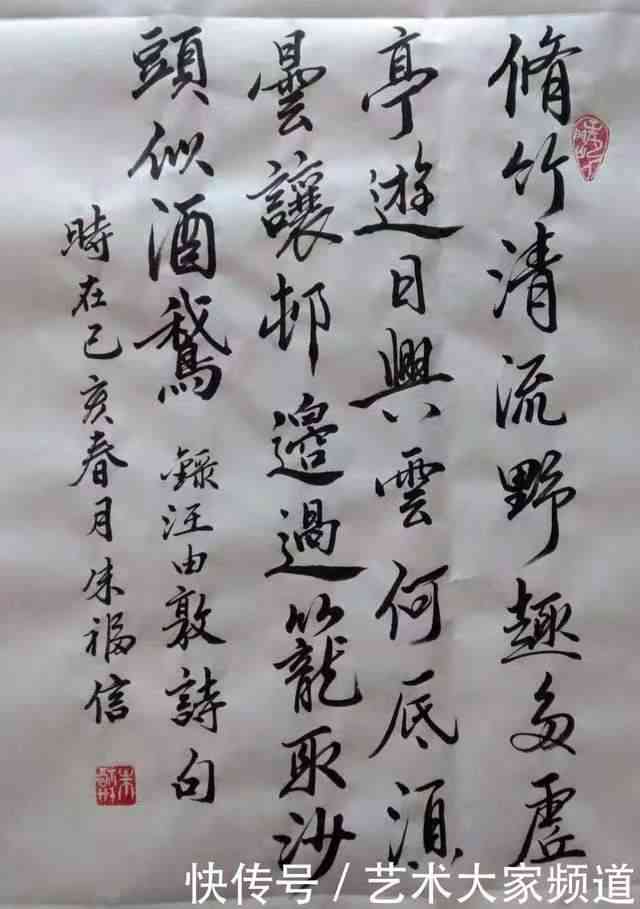 脩竹清流野趣多虛
亭遊日興雲何底須
曇讓邨邊過籠取沙
頭似酒鵞
錄汪由敦詩句
時在己亥春月朱福信
快传号/艺术大家频道